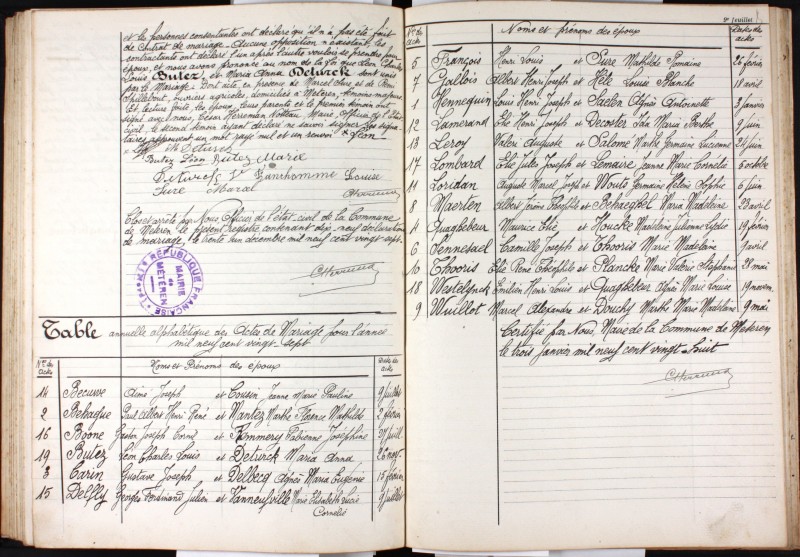 et les personnes consentantes ont déclaré qu'il n'a pas été fait
de Contrat de mariage. Aucune opposition n'existant, les
contractants ont déclaré l'un après l'autre vouloir se prendre pour
époux, et nous avons prononcé au nom de la loi que Léon Charles
Louis Butez et Maria Anna Deturck sont unis
par le Mariage. Dont acte, en présence de Marcel Sure et de
ouvriers agricoles, domiciliés à Méteren, témoins majeurs
Et, lecture faite, les époux, leurs parents et le premier témoin ont
signé avec nous, César Herreman Maire, Officier de l'Etat
Civil, le second témoin ayant déclaré ne savoir signer.
mot rayé nul et un renvoi
M Deturck
Butez Léon Butez Marie
Deturck Vanhomme Louise
Sure Marcel
Clos et arrêté par Nous Officier de l'état-civil de la Commune
de Méteren, le présent registre contenant dix-neuf déclarations
de mariage, le trente un décembre mil neuf cent vingt sept.
RÉPUBLIQUE FRANÇAISE
MAIRIE
DE
MÉTEREN
Table annuelle alphabétique des Actes de Mariage pour l'année
mil neuf cent vingt sept
Nos des actes
Noms et Prénoms des époux
Dates des actes
14 Becuwe Aimé Joseph et Cousin Jeanne Marie Pauline 9 juillet
2 Behague Paul Albert Henri René et Mantez Marthe Florence Mathilde 2 février
16 Boone Gaston Joseph Corneil et Fommery Fabienne Joséphine 27 juill.
19 Butez Léon Charles Louis et Deturck Maria Anna 26 nov.
3 Carin Gustave Joseph et Delbecq Agnès Maria Eugénie 15 février
15 Delfly Georges Ferdinand Julien et Vanneufville Marie Elisabeth Lucie 9 juillet
Cornélie
2e feuillet
Nos des actes
Noms et prénoms des époux
Dates des actes
5 François Henri Louis et Sure Mathilde Romaine 26 février
7 Guilbois Albert Henri Joseph et Hèle Louise Blanche 18 avril
1 Hennequin Louis Henri Joseph et Saelen Agnès Antoinette 3 janvier
12 Lamerand Elie Henri Joseph et Decoster Ida Maria Berthe 9 juin
13 Leroy Valère Auguste et Salomé Marthe Germaine Lucienne 24 juin
17 Lombard Elie Jules Joseph et Lemaire Jeanne Marie Cornélie 5 octobre
11 Loridan Auguste Marcel Joseph et Wouts Germaine Hélène Sophie 6 juin
8 Maerten Albert Jérôme Théophile et Behaeghel Maria Madeleine 23 avril
4 Quaghebeur Maurice Elie et Houcke Madeleine Julienne Lydie 19 février
6 Sennesael Camille Joseph et Chooris Marie Madeleine 9 avril
10 Chooris Elie René Théophile et Plancke Marie Valérie Stéphanie 28 mai
18 Westelynck Emilien Henri Louis et Quaghebeur Agnès Marie Louise 19 novem.
9 Wuillot Marcel Alexandre et Douchy Marthe Marie Madeleine 9 mai
Certifié par Nous, Maire de la Commune de Méteren
le trois janvier mil neuf cent vingt huit